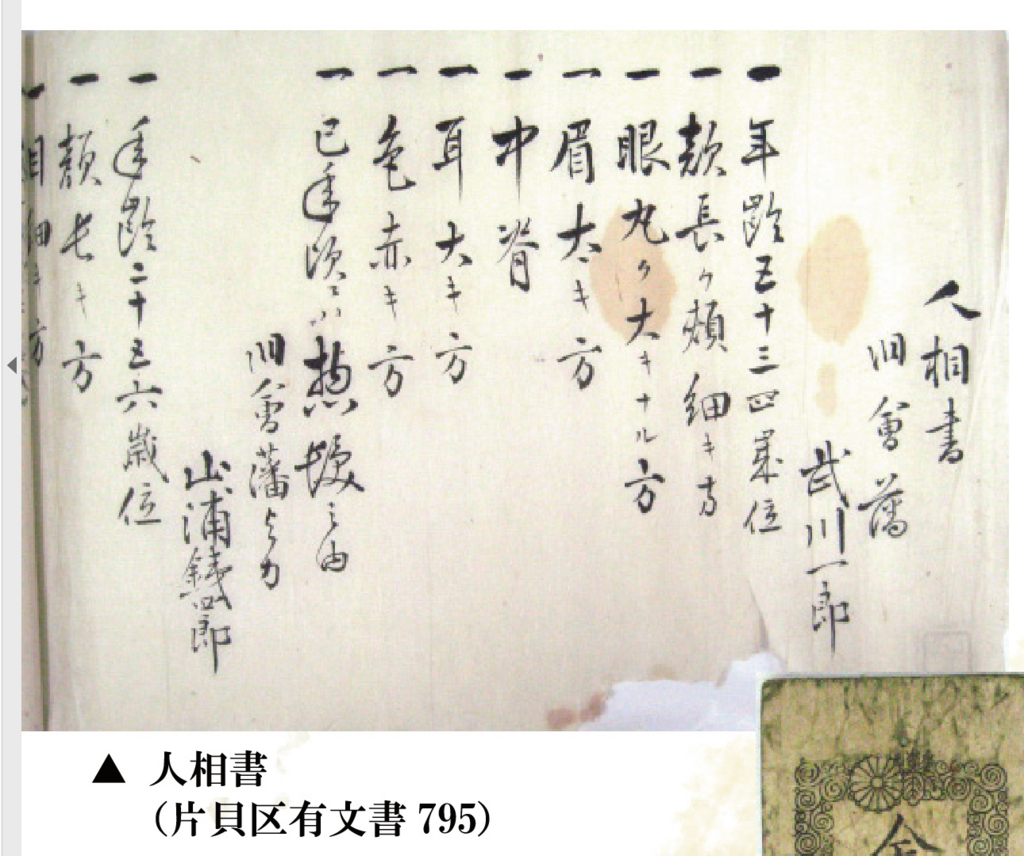 人相書
旧會藩
武川一郎
一年齢五十三四歳位
一顔長ク頬細キ方
一眼丸ク大キナル方
一眉太キ方
一中脊
一耳大キ方
一色赤キ方
一已年頃ニハ惣髪之由
旧會藩与力
山浦鉄四郎
一年齢二十五六歳位
一顔長キ方
一相細キ方
▲ 人相書
（片貝区有文書 795）